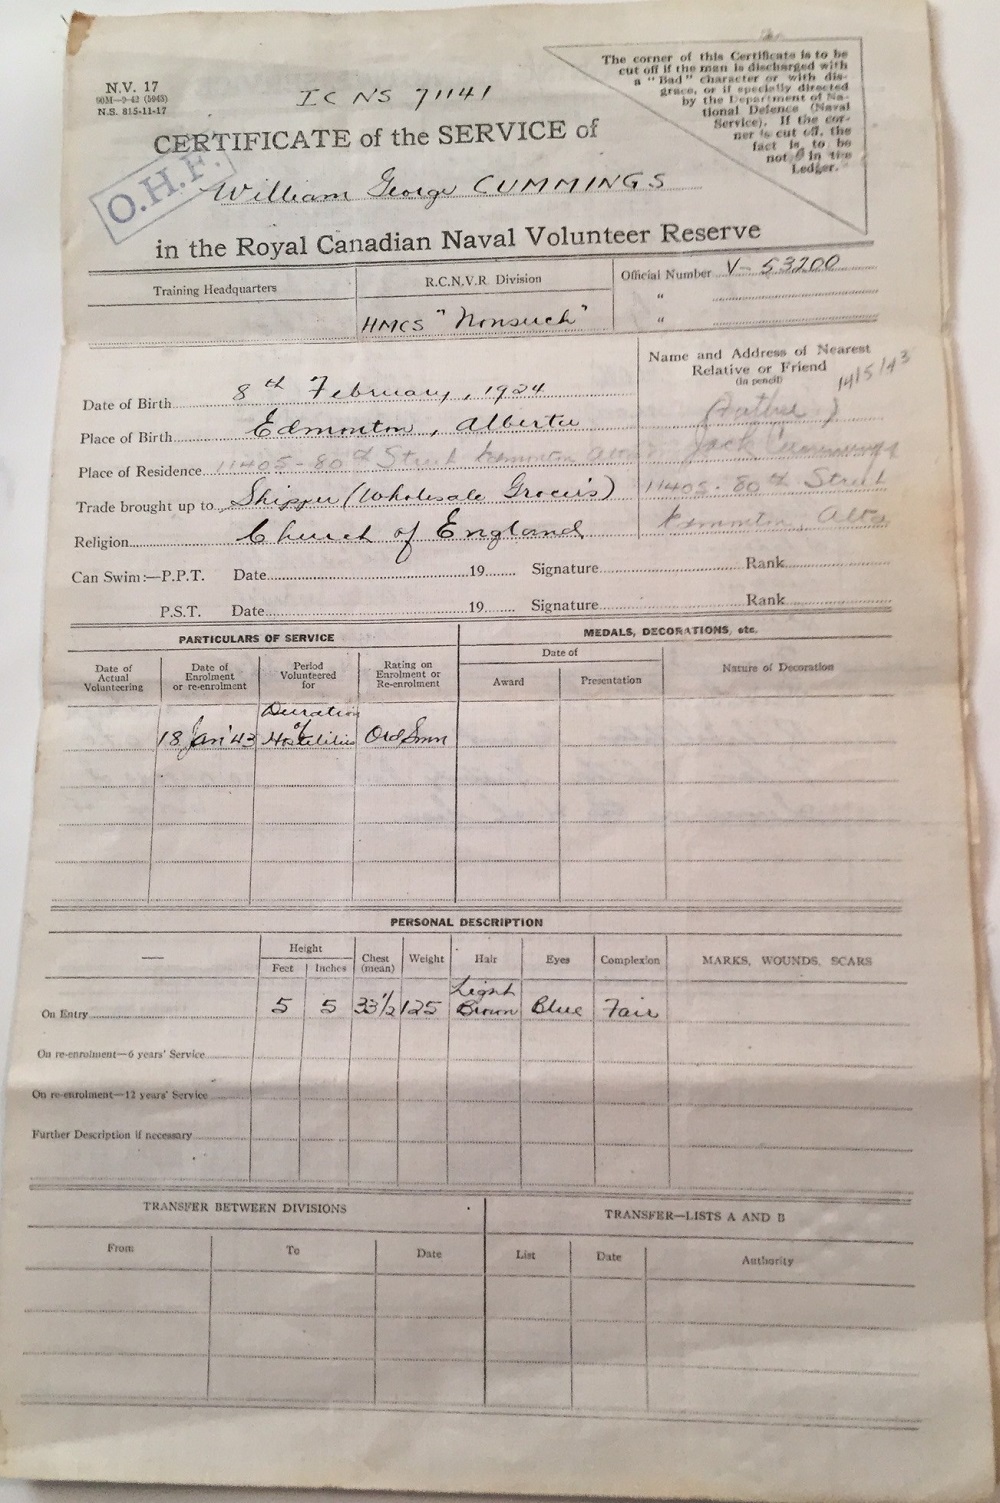 N.V. 17
90M—9-42 (5943)
N.S. 815-11-17
I C NS 71141
The corner of this Certificate is to be
cut off if the man is discharged with
a "Bad" character or with dis-
grace, or if specially directed
by the Department of Na-
tional Defence (Naval
Service). If the cor-
ner is cut off, the
fact is to be
not in the
Ledger.
CERTIFICATE of the SERVICE of
O.H.F.
William George CUMMINGS
in the Royal Canadian Naval Volunteer Reserve
Training Headquarters
R.C.N.V.R. Division
HMCS "Nonsuch"
Official Number V- 53200
"
"
Name and Address of Nearest
Relative or Friend
(in pencil)
14/5/43
(Father)
Jack Cummings
11405 - 80th Street
Edmonton, Alta
Date of Birth 8th February, 1924
Place of Birth Edmonton, Alberta
Place of Residence 11405 - 80th Street Edmonton Alta
Trade brought up to Shipper (Wholesale Grocers)
Religion Church of England
Can Swim:—P.P.T. Date 19 Signature Rank
P.S.T. Date 19 Signature Rank
PARTICULARS OF SERVICE
Date of
Actual
Volunteering
Date of
Enrolment
or re-enrolment
Period
Volunteered
for
Rating on
Enrolment or
Re-enrolment
18 Jan '43
Duration
of
Hostilities
Ord Smn
MEDALS, DECORATIONS, etc.
Date of
Award
Presentation
Nature of Decoration
PERSONAL DESCRIPTION
—
Height
Feet
Inches
Chest
(mean)
Weight
Hair
Eyes
Complexion
MARKS, WOUNDS, SCARS
On Entry 5 5 33½ 125 Light Brown Blue Fair
On re-enrolment—6 years' Service
On re-enrolment—12 years' Service
Further Description if necessary
TRANSFER BETWEEN DIVISIONS
From
To
Date
TRANSFER—LISTS A AND B
List
Date
Authority